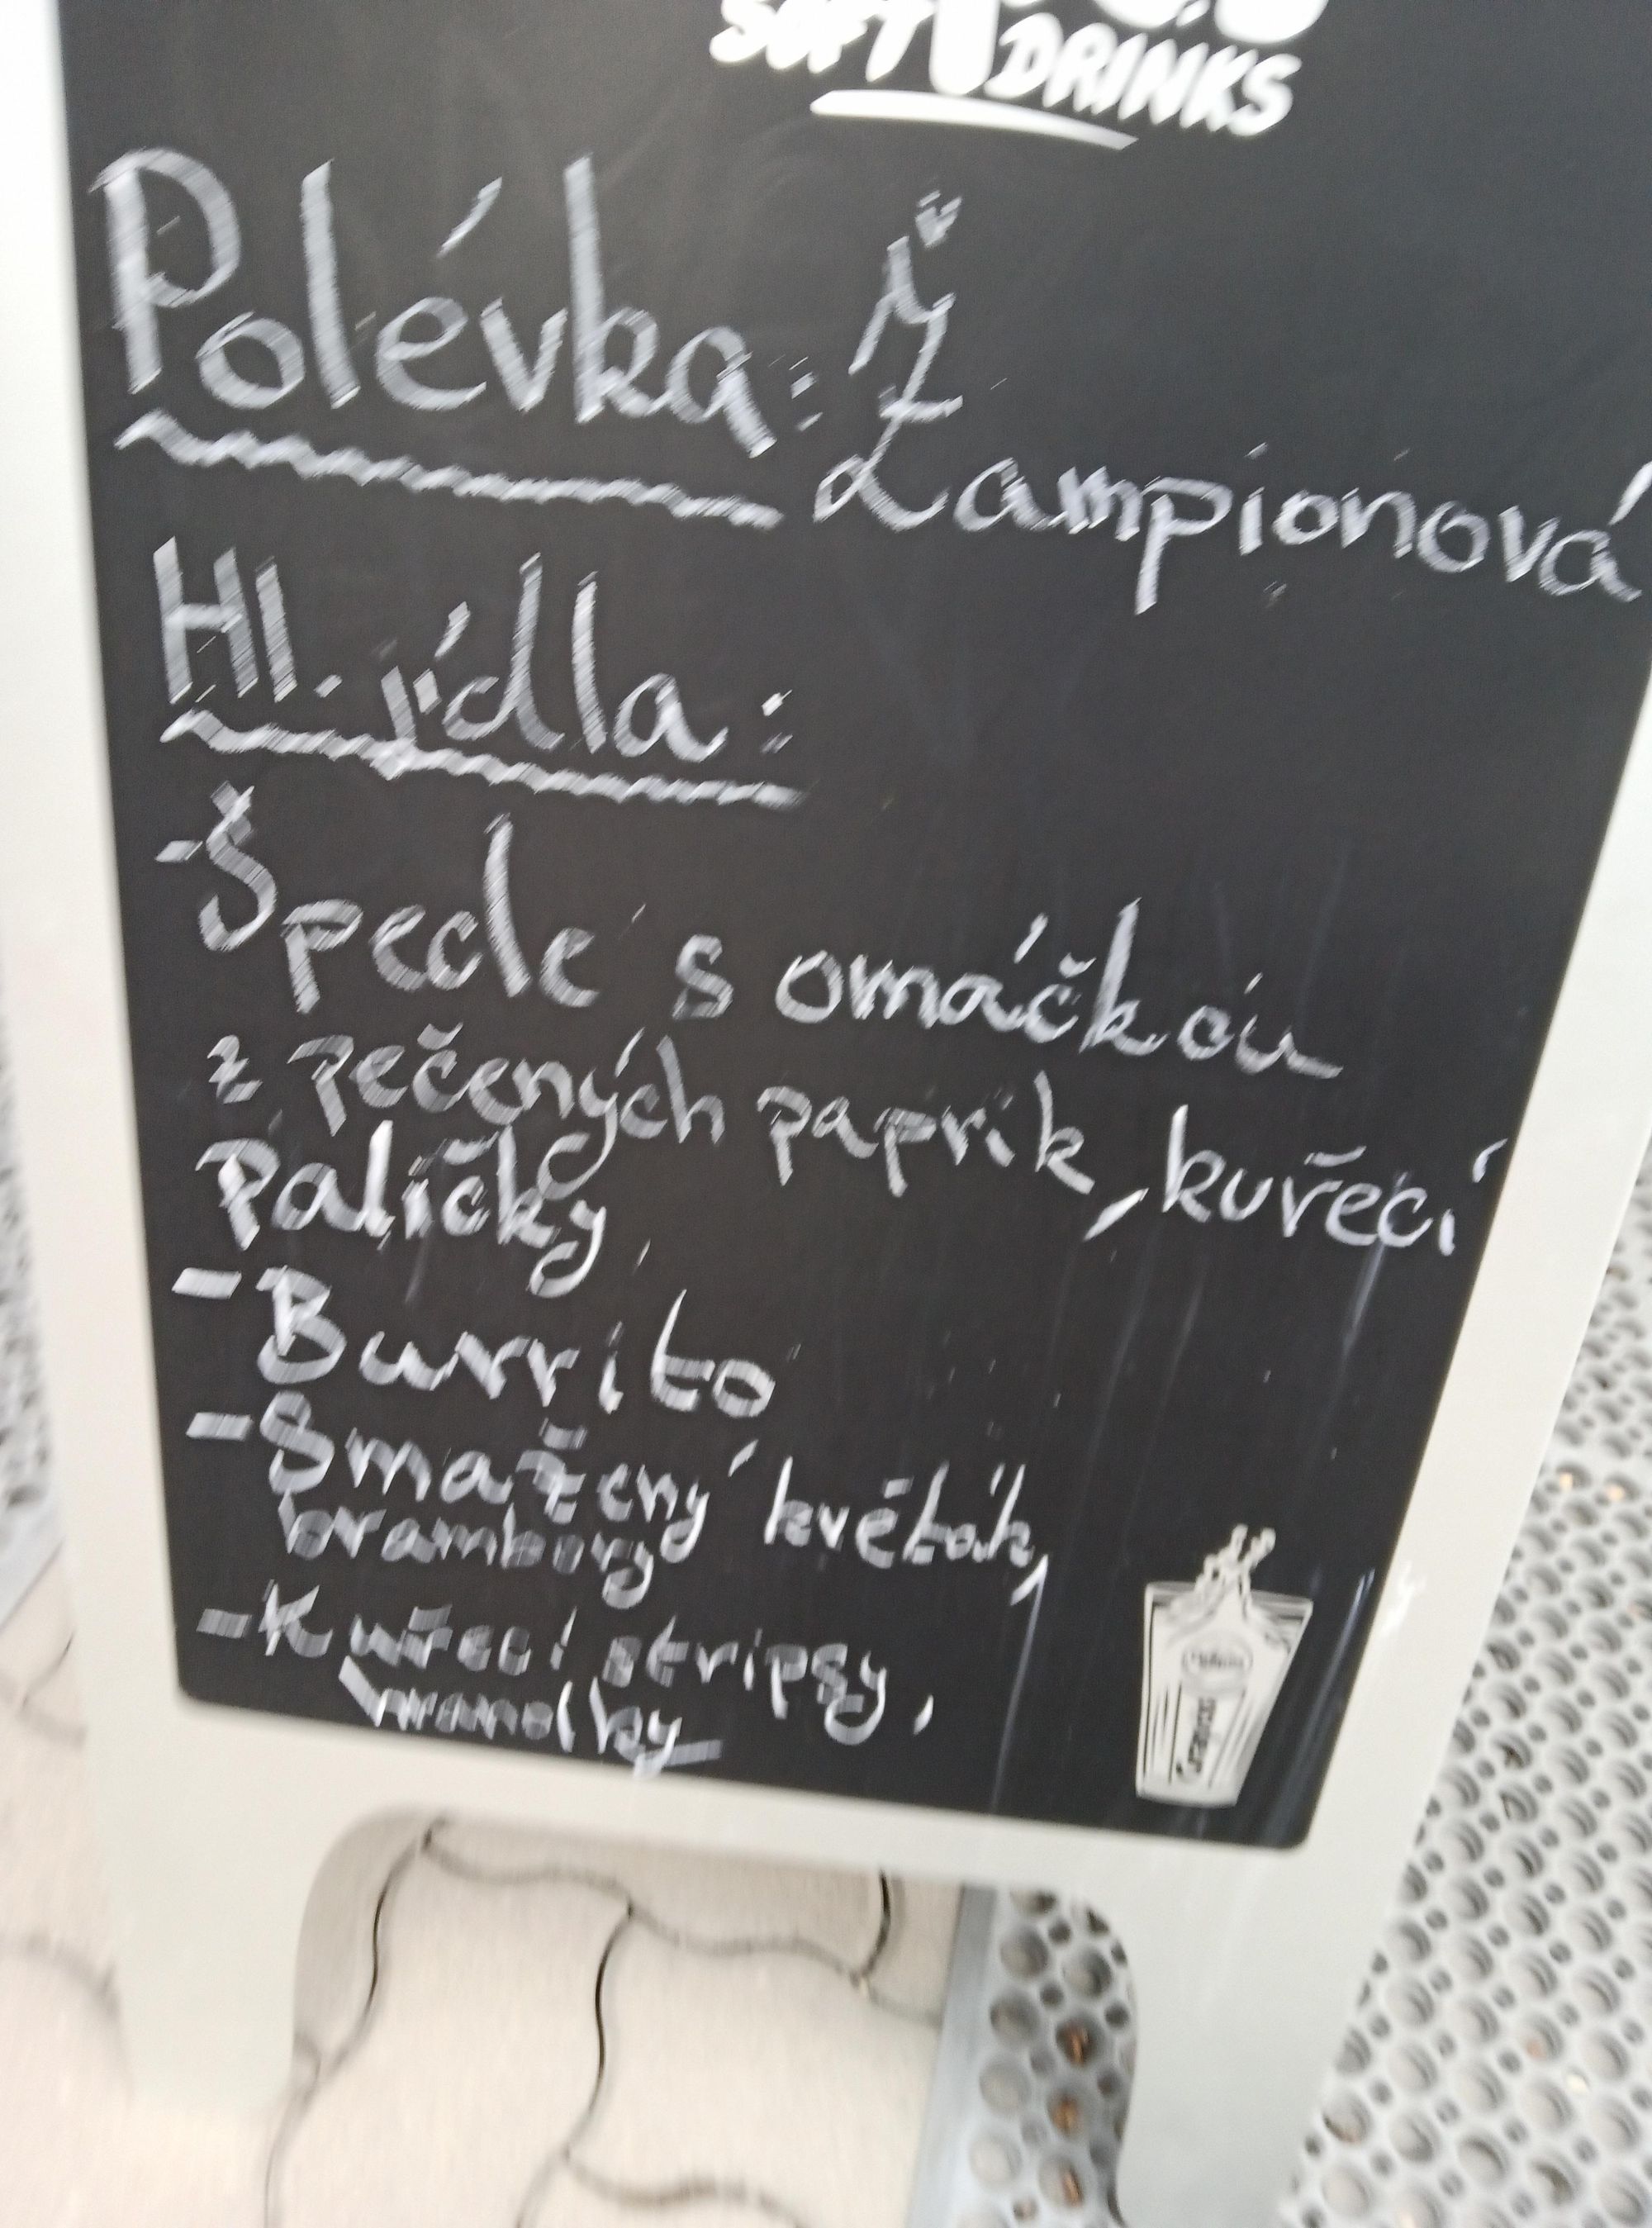 SOFT DRINKS
Polévka: Ž
Žampionová
Hl. jídla:
-Špecle s omáčkou
z pečených paprik, kuřecí
paličky,
- Burrito
- Smažený květák,
brambory
- Kuřecí stripsy,
hranolky